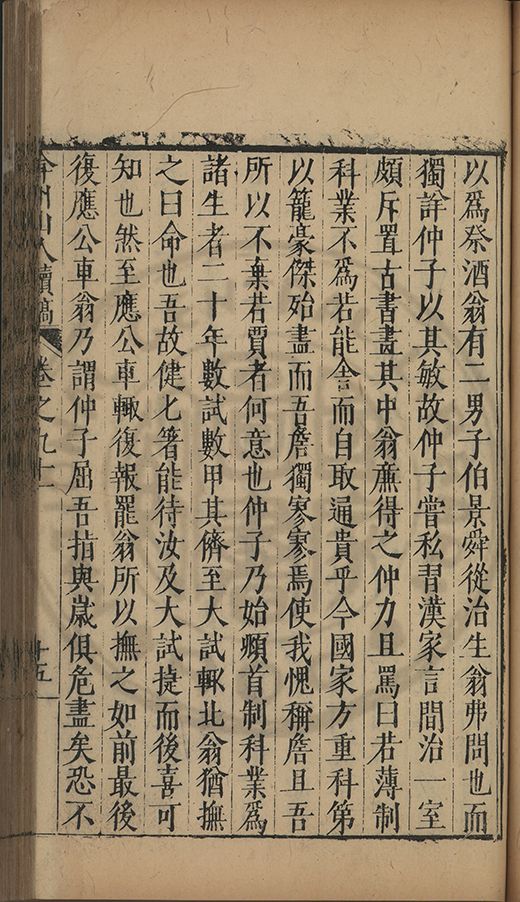 以爲祭酒翁有二男子伯景舜從治生翁弗問也而
獨詳仲子以其敏故仲子嘗私習漢家言間治一室
頗斥置古書畫其中翁廉得之仲力且罵曰若薄制
科業不爲若能舍而自取通貴乎今國家方重科第
以籠豪傑殆盡而吾詹獨寥寥焉使我愧稱詹且吾
所以不棄若賈者何意也仲子乃始頫首制科業爲
諸生者二十年數試數甲其儕至大試輒北翁猶撫
之曰命也吾故健匕箸能待汝及大試捷而後喜可
知也然至應公車輒復報罷翁所以撫之如前最後
復應公車翁乃謂仲子屈吾指與歲俱危盡矣恐不
弇州山人續稿 卷之九十一 十五